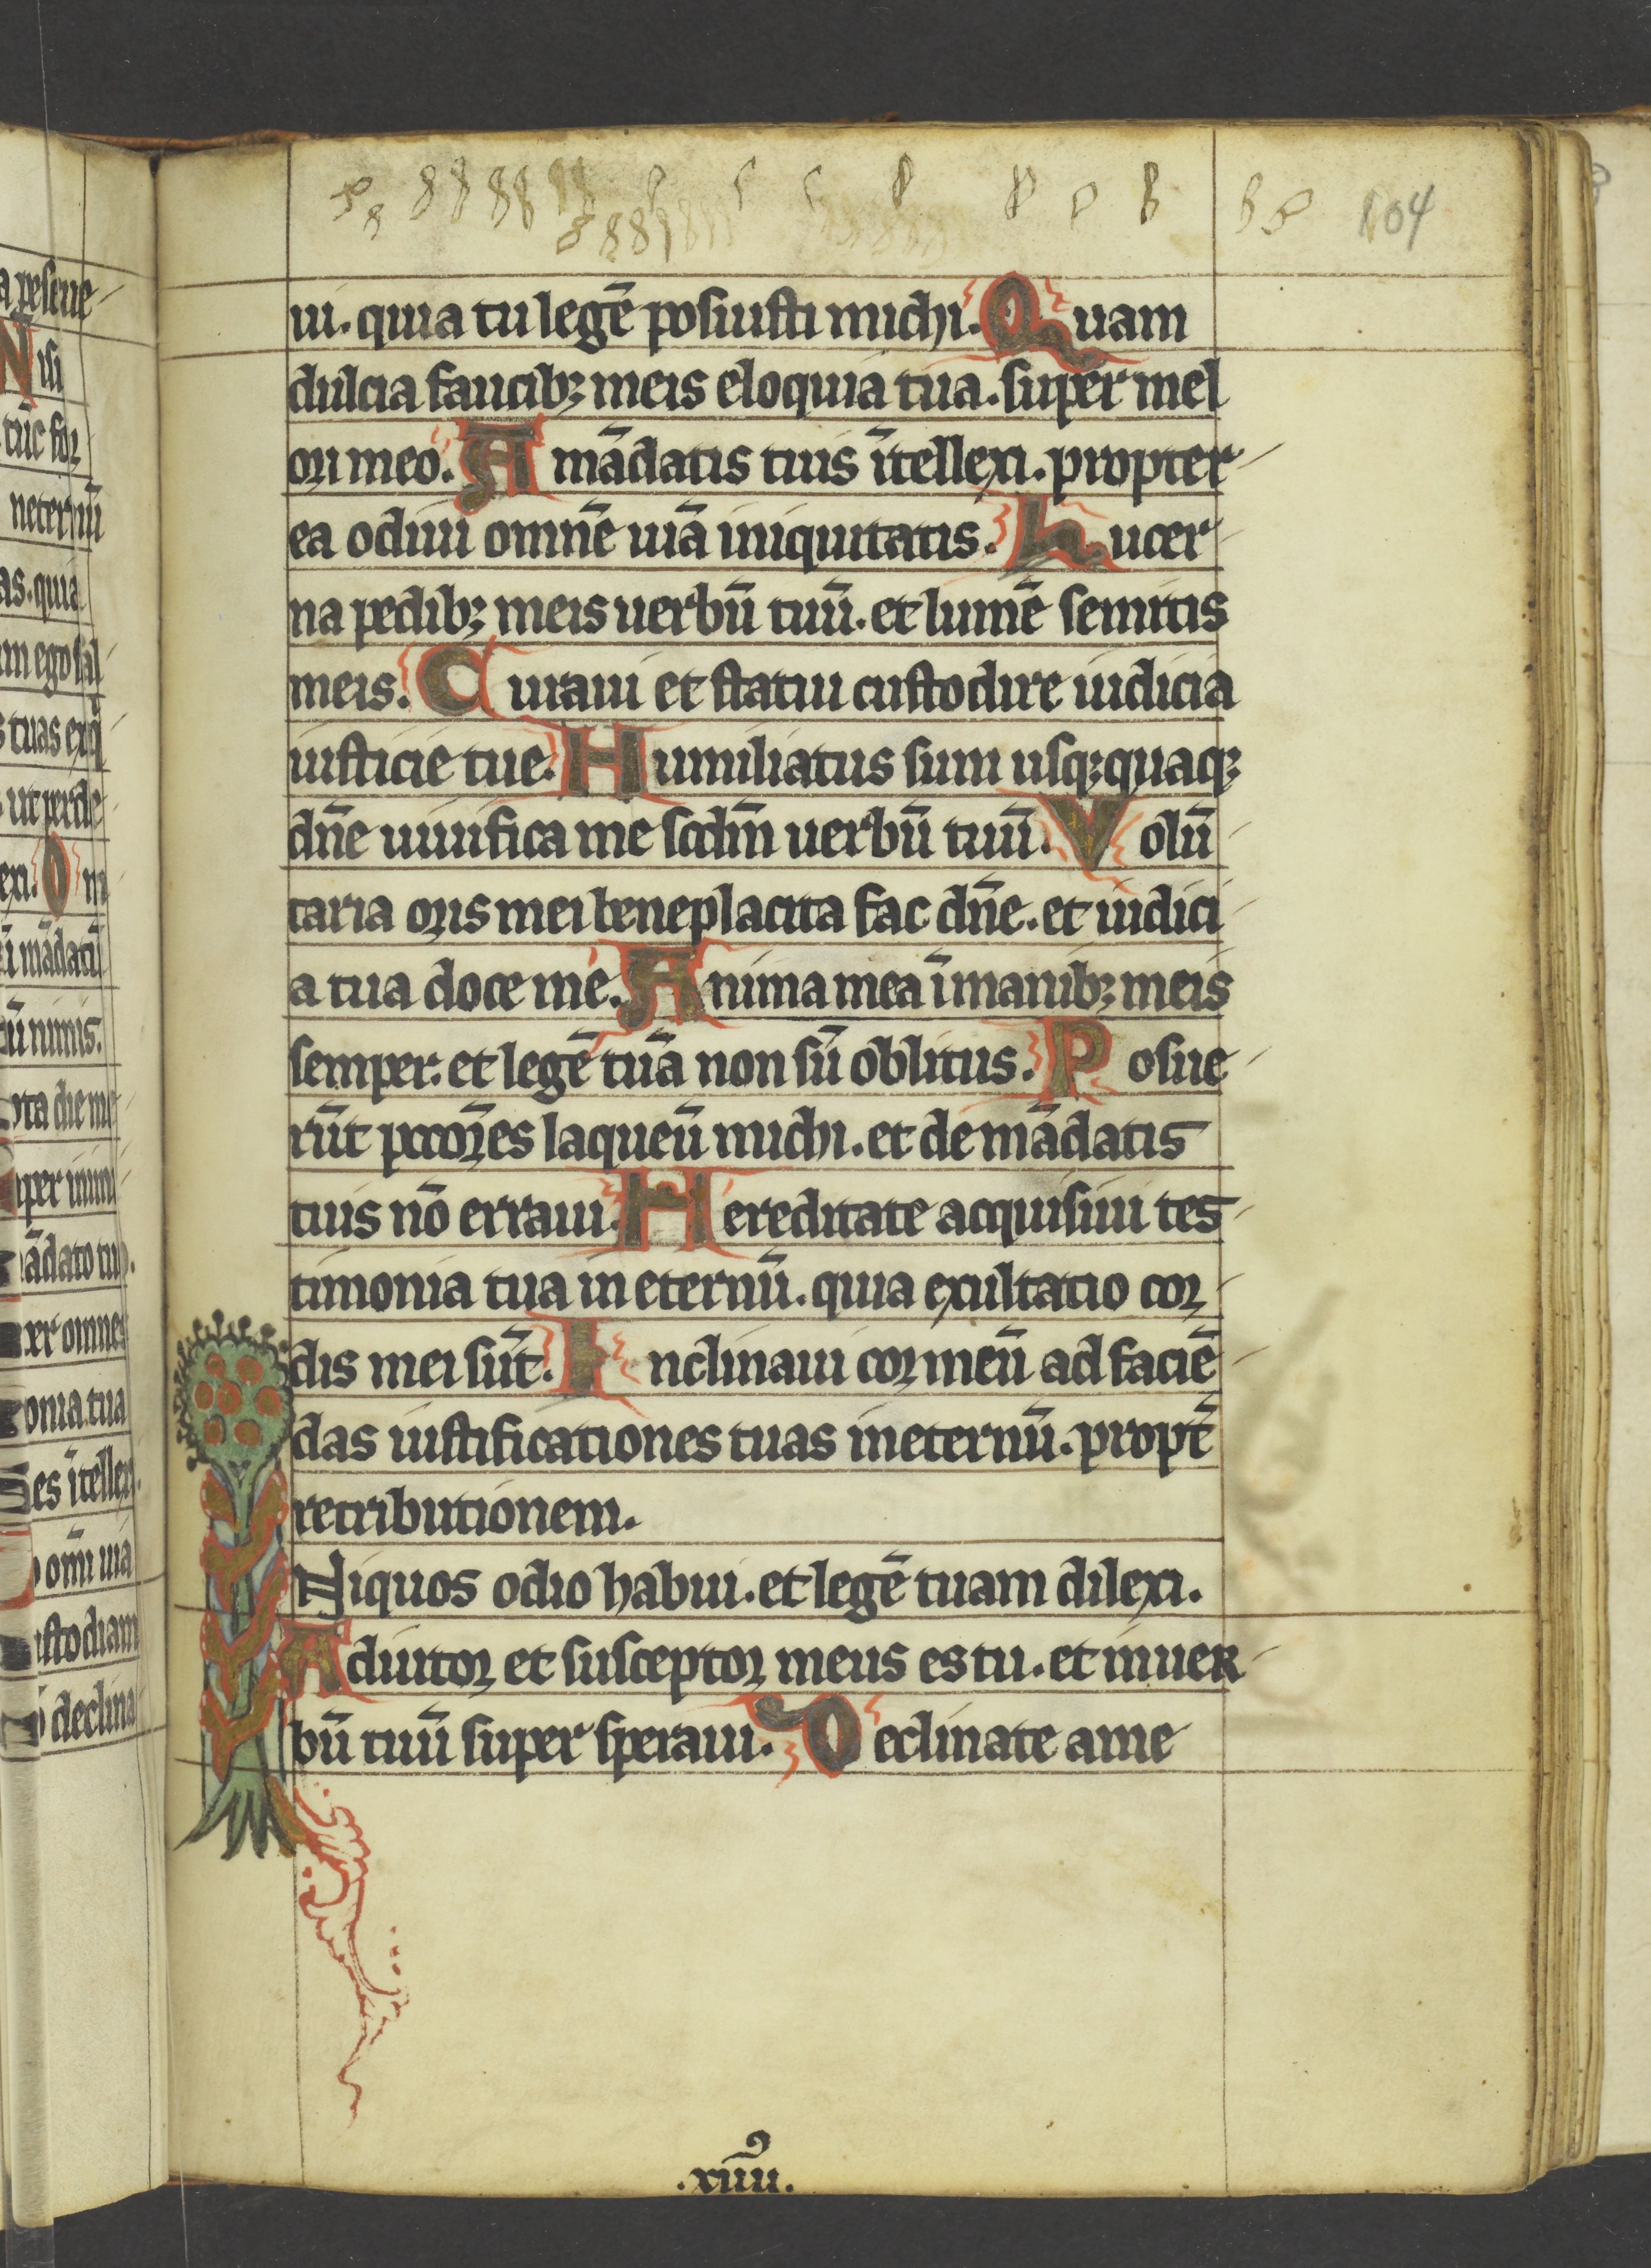 104
ui. quia tu legē posuisti michi. Quam
dulcia faucibꝫ meis eloquia tua. super mel
ori meo. A mādatis tuis ītellexi. propter
ea odiui omnē uiā iniquitatis. Lucer
na pedibꝫ meis uerbū tuū. et lumē semitis
meis. Iuraui et statui custodire iudicia
iusticie tue. Humiliatus sum usqꝫquaqꝫ
dn̄e uiuifica me scdm̄ uerbū tuū. Volū
taria oris mei beneplacita fac dn̄e. et iudici
a tua doce me. Anima mea ī manibꝫ meis
semper. et legē tuā non sū oblitus. Posue
rūt pccōres laqueū michi. et de mādatis
tuis nō erraui. Hereditate acquisiui tes
timonia tua in eternū. quia exultatio cor
dis mei sūt. Inclinaui cor meū ad faciē
das iustificationes tuas in eternū. propt̄
retributionem.
INiquos odio habui. et legē tuam dilexi.
Adiutor et susceptor meus es tu. et in uer
bū tuū super speraui. Declinate a me
.xiiii᷒.